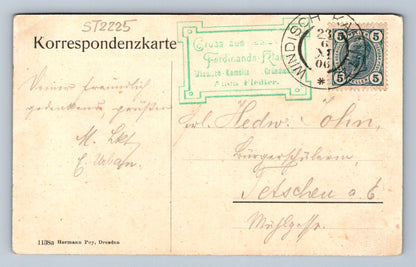 ST2225
Korrespondenzkarte
Gruss aus
Ferdinands
Windisch-Kamnitz Grund
Fiedler.
WINDISCH KA
23
6
XI
06
5 5
5 5
Deiner freundlich
gedenkend grüßen
M.
E. Urban.
Frl. Hedw. John,
Bürgerschülerin,
Tetschen a. E
Mühlgasse.
1138a Hermann Poy, Dresden